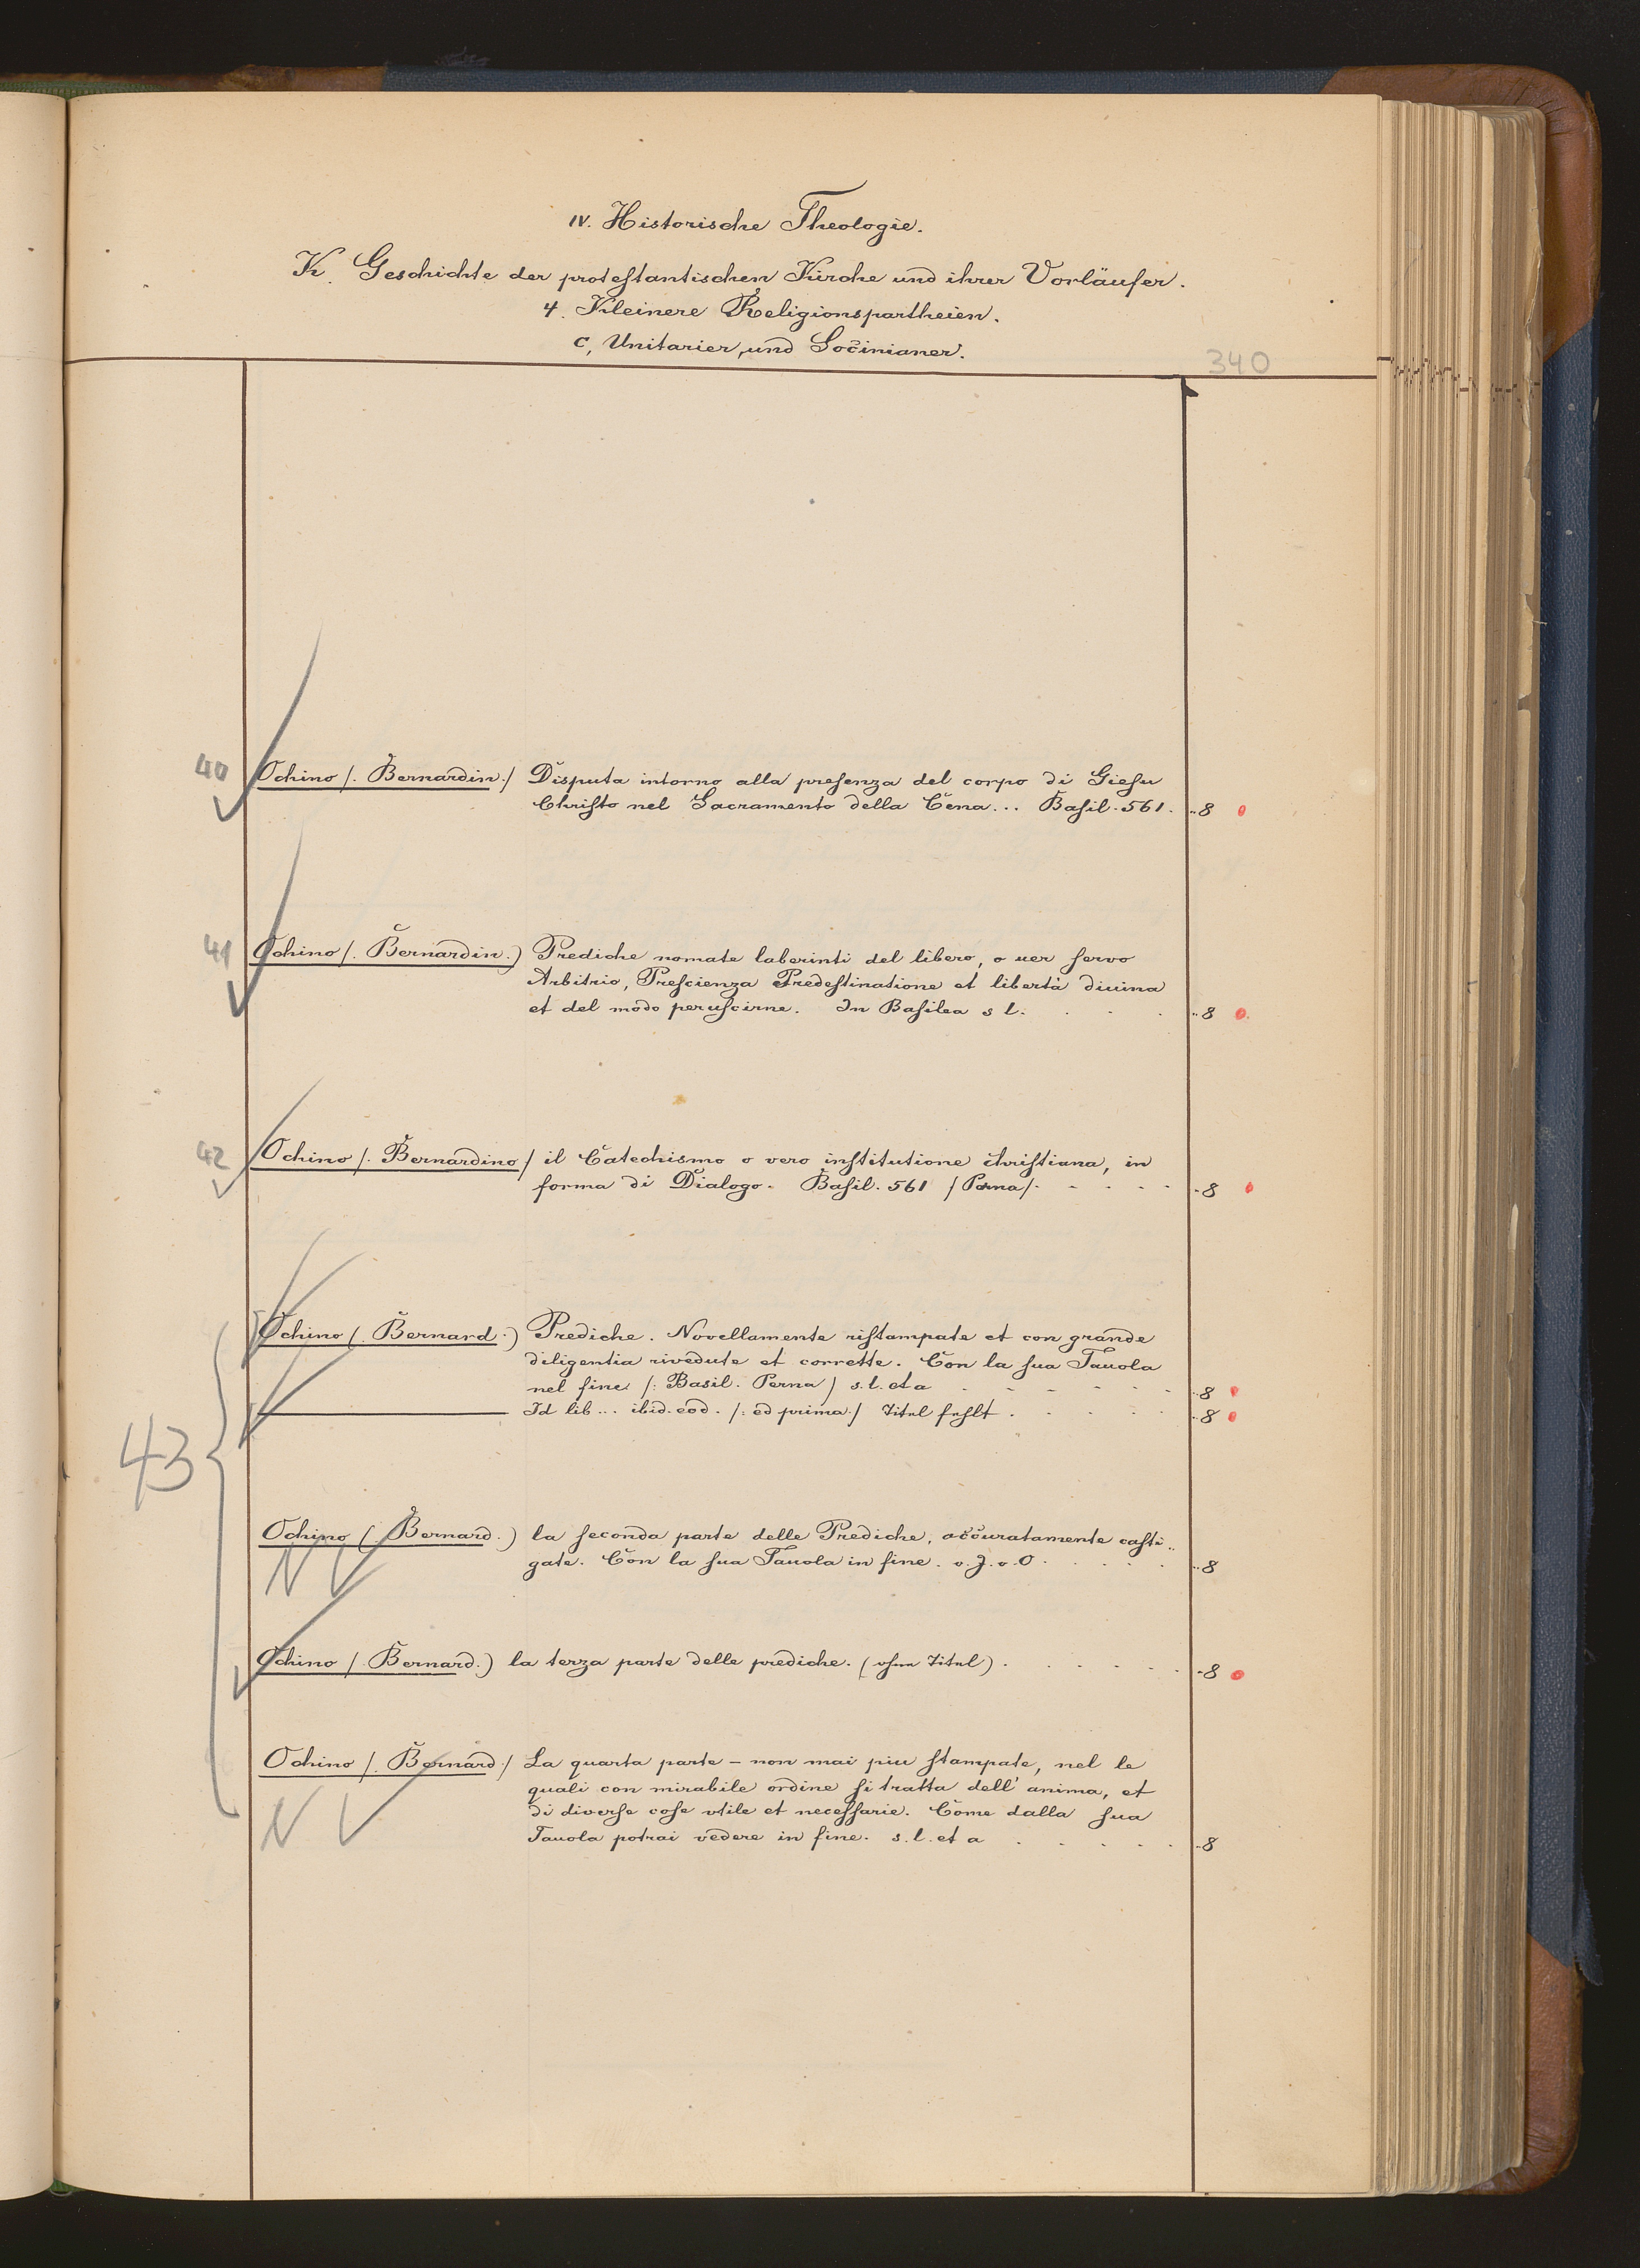 IV. Historische Theologie.
K. Geschichte der protestantischen Kirche und ihrer Vorläufer.
4. Kleinere Religionspartheien.
c, Unitarier und Socinianer.
340
40 Ochino /. Bernardin./ Disputa intorno alla presenza del corpo di Giesu
Christo nel Sacramento della Cena... Basil. 561. 8
41 Ochino /. Bernardin.) Prediche nomate laberinti del libero, o uer servo
Arbitrio, Prescienza Predestinatione et libertà diuina
et del modo peruscirne. In Basilea s l. 8
42 Ochino /. Bernardino/ il Catechismo o vero institutione christiana, in
forma di Dialogo. Basil. 561 /Perna/. 8
43
Ochino (. Bernard.) Prediche. Novellamente ristampate et con grande
diligentia rivedute et corrette. Con la sua Tauola
nel fine /: Basil. Perna/ s. l. et a 8
Id lib... ibid. eod. /: ed prima./ Titel fehlt. 8
Ochino (. Bernard.) la seconda parte delle Prediche, accuratamente casti-
gate. Con la sua Tauola in fine. o. J. o. O. 8
N V
Ochino /. Bernard.) la terza parte delle prediche. (ohne Titel). 8
Ochino /. Bernard./ La quarta parte – non mai piu stampate, nel le
quali con mirabile ordine si tratta dell' anima, et
di diverse cose vtile et necessarie. Come dalla sua
Tauola potrai vedere in fine. s. l. et a 8
N V